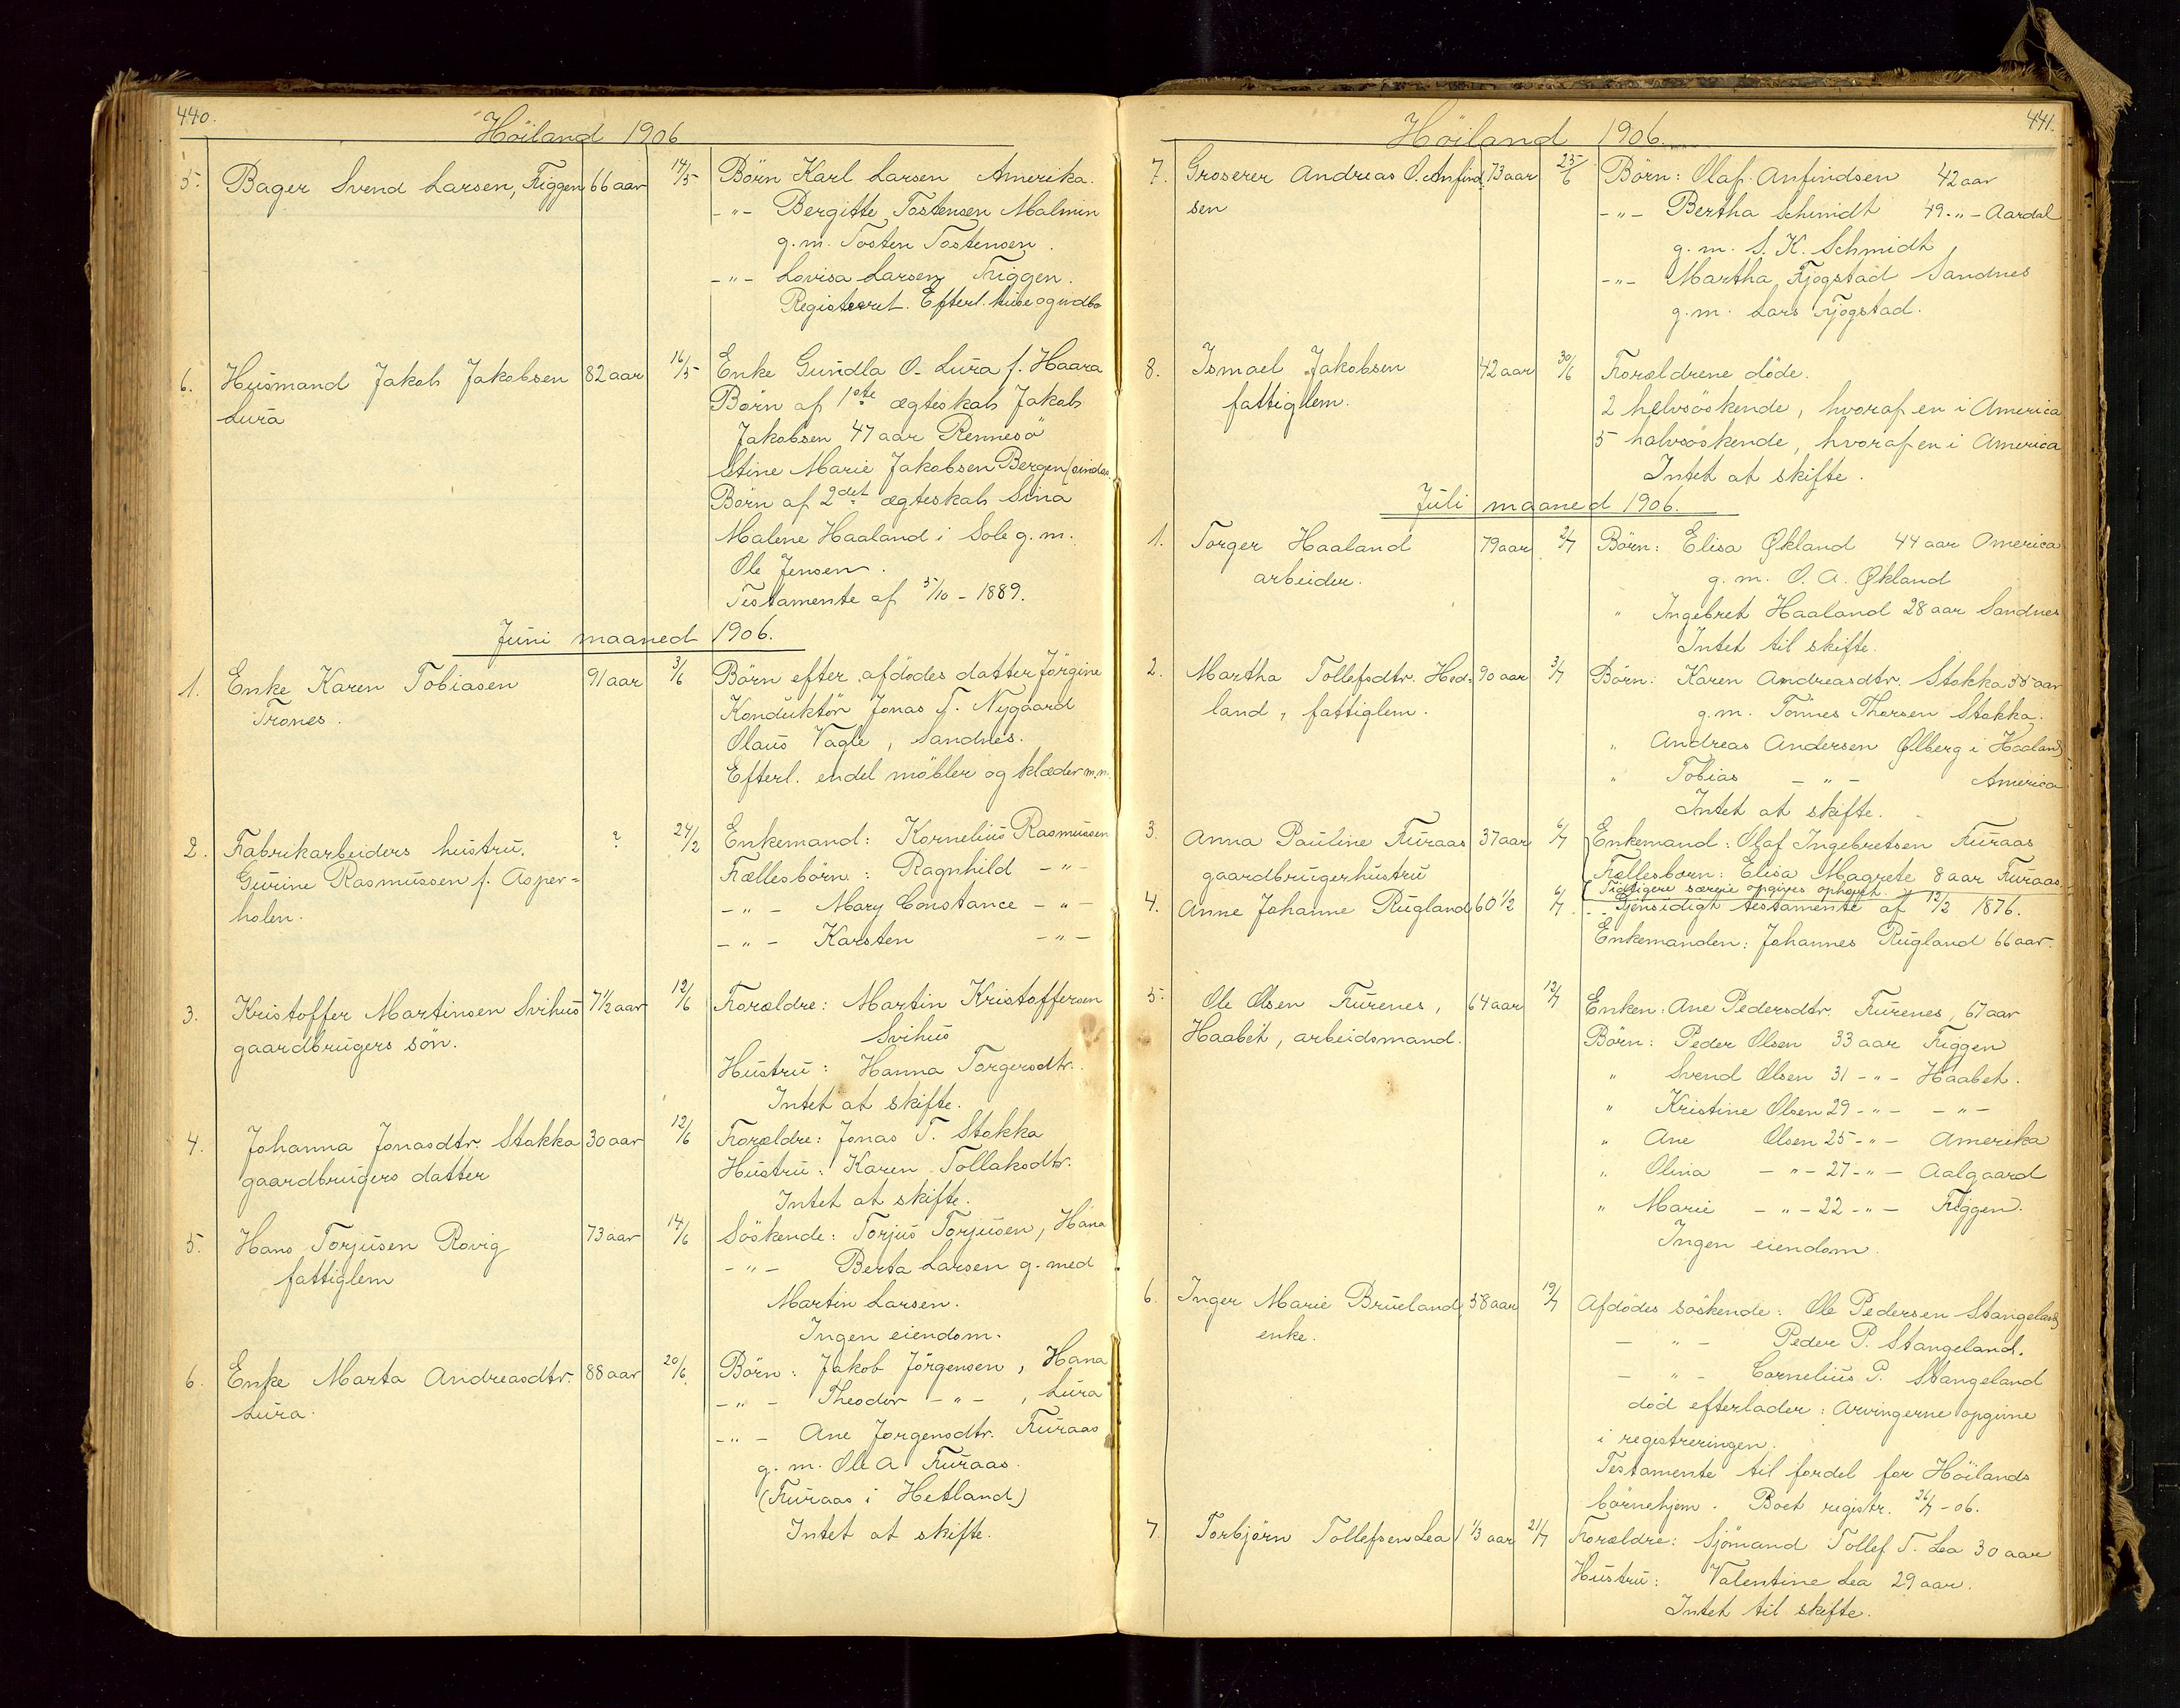 440.
Höiland 1906
5. Bager Svend Larsen, Figgen 66 aar 14/5 Börn Karl Larsen Amerika.
-"- Bergitte Tostensen Malmin
g. m. Tosten Tostensen.
-"- Lovisa Larsen Figgen.
Registreret. Efterl. huse og indbo
6. Husmand Jakob Jakobsen 82 aar 16/5 Enke Gundla O. Lura f. Haara
Lura Börn af 1ste ægteskab Jakob
Jakobsen 47 aar Rennesö
Stine Marie Jakobsen Bergen
Börn af 2det ægteskab Sina
Malene Haaland i Sole g. m.
Ole Jensen.
Testamente af 5/10 - 1889.
Juni maaned 1906.
1. Enke Karen Tobiasen 91 aar 3/6 Börn efter afdödes datter Jörgine
Trones. Konduktör Jonas J. Nygaard
Olaus Vagle, Sandnes.
Efterl. endel möbler og klæder m.m.
2. Fabrikarbeiders hustru. ? 24/2 Enkemand: Kornelius Rasmussen
Gurine Rasmussen f. Asper= Fællesbörn: Ragnhild -"-
holen. -"- Mary Constance -"-
-"- Karsten -"-
3. Kristoffer Martinsen Svihus 7 1/2 aar 12/6 Forældre: Martin Kristoffersen
gaardbrugers sön. Svihus
Hustru: Hanna Torgersdtr.
Intet at skifte.
4. Johanna Jonasdtr. Stokka 30 aar 12/6 Forældre: Jonas T. Stokka
gaardbrugers datter Hustru: Karen Tollaksdtr.
Intet at skifte.
5. Hans Torjusen Rovig 73 aar 14/6 Söskende: Torjus Torjusen, Hana
fattiglem -"- Berta Larsen g. med
Martin Larsen.
Ingen eiendom.
6. Enke Marta Andreasdtr. 88 aar 20/6 Börn: Jakob Jörgensen, Hana
Lura. -"- Theodor -"-, Lura
-"- Ane Jorgensdtr. Furaas
g. m. Ole A Furaas.
(Furaas i Hetland)
Intet at skifte.
441.
Höiland 1906.
7. Groserer Andreas O. Anfind 73 aar 25/6 Börn: Olaf Anfindsen 42 aar
sen -"- Bertha Schmidt 49 -"- Aardal
g. m. S. K. Schmidt
-"- Martha Fjogstad Sandnes
g. m. Lars Fjogstad.
8. Ismael Jakobsen 42 aar 30/6 Forældrene döde.
fattiglem. 2 helsöskende, hvoraf en i America
5 halvsöskende, hvoraf en i America
Intet at skifte.
Juli maaned 1906.
1. Torger Haaland 79 aar 2/7 Börn: Elisa Økland 44 aar America
arbeider. g. m. O. A. Økland
" Ingebret Haaland 28 aar Sandnes
Intet til skifte.
2. Martha Tollefsdtr. Hed= 90 aar 3/7 Börn: Karen Andreasdtr. Stokka 55 aar
land, fattiglem. g. m. Tönnes Thorsen Stokka.
" Andreas Andersen Ølberg i Haaland
" Tobias -"- America
Intet at skifte.
3. Anna Pauline Furaas 37 aar 6/7 Enkemand: Olaf Ingebretsen Furaas
gaardbrugerhustru Fællesbarn: Elisa Magrete 8 aar Furaas.
4. Anne Johanne Rugland 60 1/2 6/7 Gjensidigt testamente af 12/2 1876.
Enkemanden: Johannes Rugland 66 aar.
5. Ole Olsen Furenes, 64 aar 12/7 Enken: Ane Pedersdtr. Furenes, 67 aar
Haabet, arbeidsmand. Börn: Peder Olsen 33 aar Figgen
" Svend Olsen 31 -"- Haabet.
" Kristine Olsen 29 -"- -"-
" Ane Olsen 25 -"- Amerika
" Olina -"- 27 -"- Aalgaard
" Marie -"- 22 -"- Figgen.
Ingen eiendom.
6. Inger Marie Brueland, 58 aar 19/7 Afdödes söskende: Ole Pedersen Stangeland
enke. -"- Peder P. Stangeland.
-"- Cornelius P. Stangeland
död efterlader: Arvingerne opgivne
i registreringen.
Testamente til fordel for Höilands
börnehjem. Boet registr. 26/7 - 06.
7. Torbjörn Tollefsen Lea 1 1/3 aar 21/7 Forældre: Sjömand Tollef T. Lea 30 aar
Hustru: Valentine Lea 29 aar.
Intet til skifte.